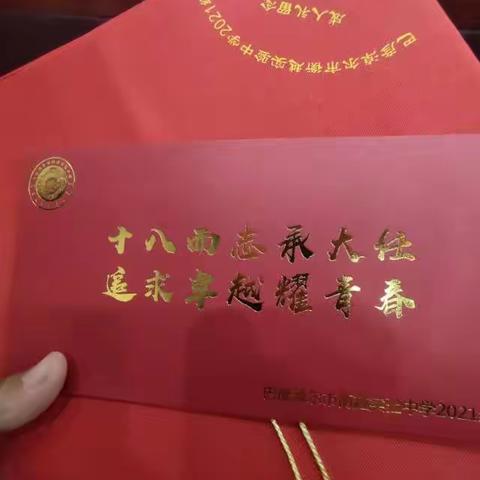 巴彦淖尔市衡越实验中学2021
成人礼留念
十八而志承大任
追求卓越耀青春
巴彦淖尔市衡越实验中学2021